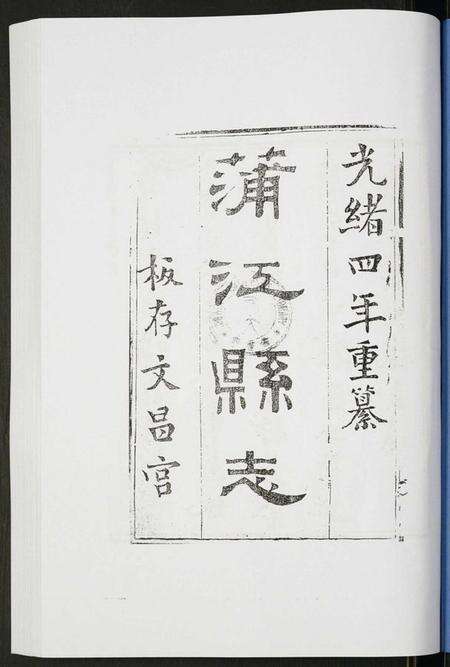 光緒四年重纂
蒲江縣志
板存文昌宮